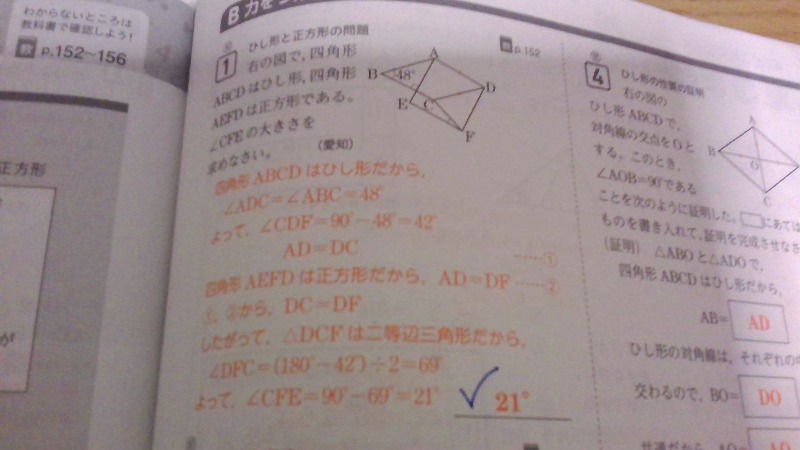 わからないところは
教科書で確認しよう!
教 p.152~156
正方形
が
B 力を
1 ひし形と正方形の問題
教 p.152
右の図で, 四角形
ABCDはひし形, 四角形
AEFDは正方形である。
∠CFEの大きさを
求めなさい。 (愛知)
A
B
48°
D
E
C
F
四角形ABCDはひし形だから,
∠ADC=∠ABC=48°
よって, ∠CDF=90°-48°=42°
AD=DC ……①
四角形AEFDは正方形だから, AD=DF ……②
①, ②から, DC=DF
したがって, △DCFは二等辺三角形だから,
∠DFC=(180°-42°)÷2=69°
よって, ∠CFE=90°-69°=21°
21°
4 ひし形の性質の証明
右の図の
ひし形ABCDで,
対角線の交点をOと
する。このとき,
∠AOB=90°である
ことを次のように証明した。 にあては
ものを書き入れて, 証明を完成させなさ
A
B
O
C
(証明) △ABOと△ADOで,
四角形ABCDはひし形だから,
AB= AD
ひし形の対角線は, それぞれの中
交わるので, BO= DO
共通だから, AO= AO